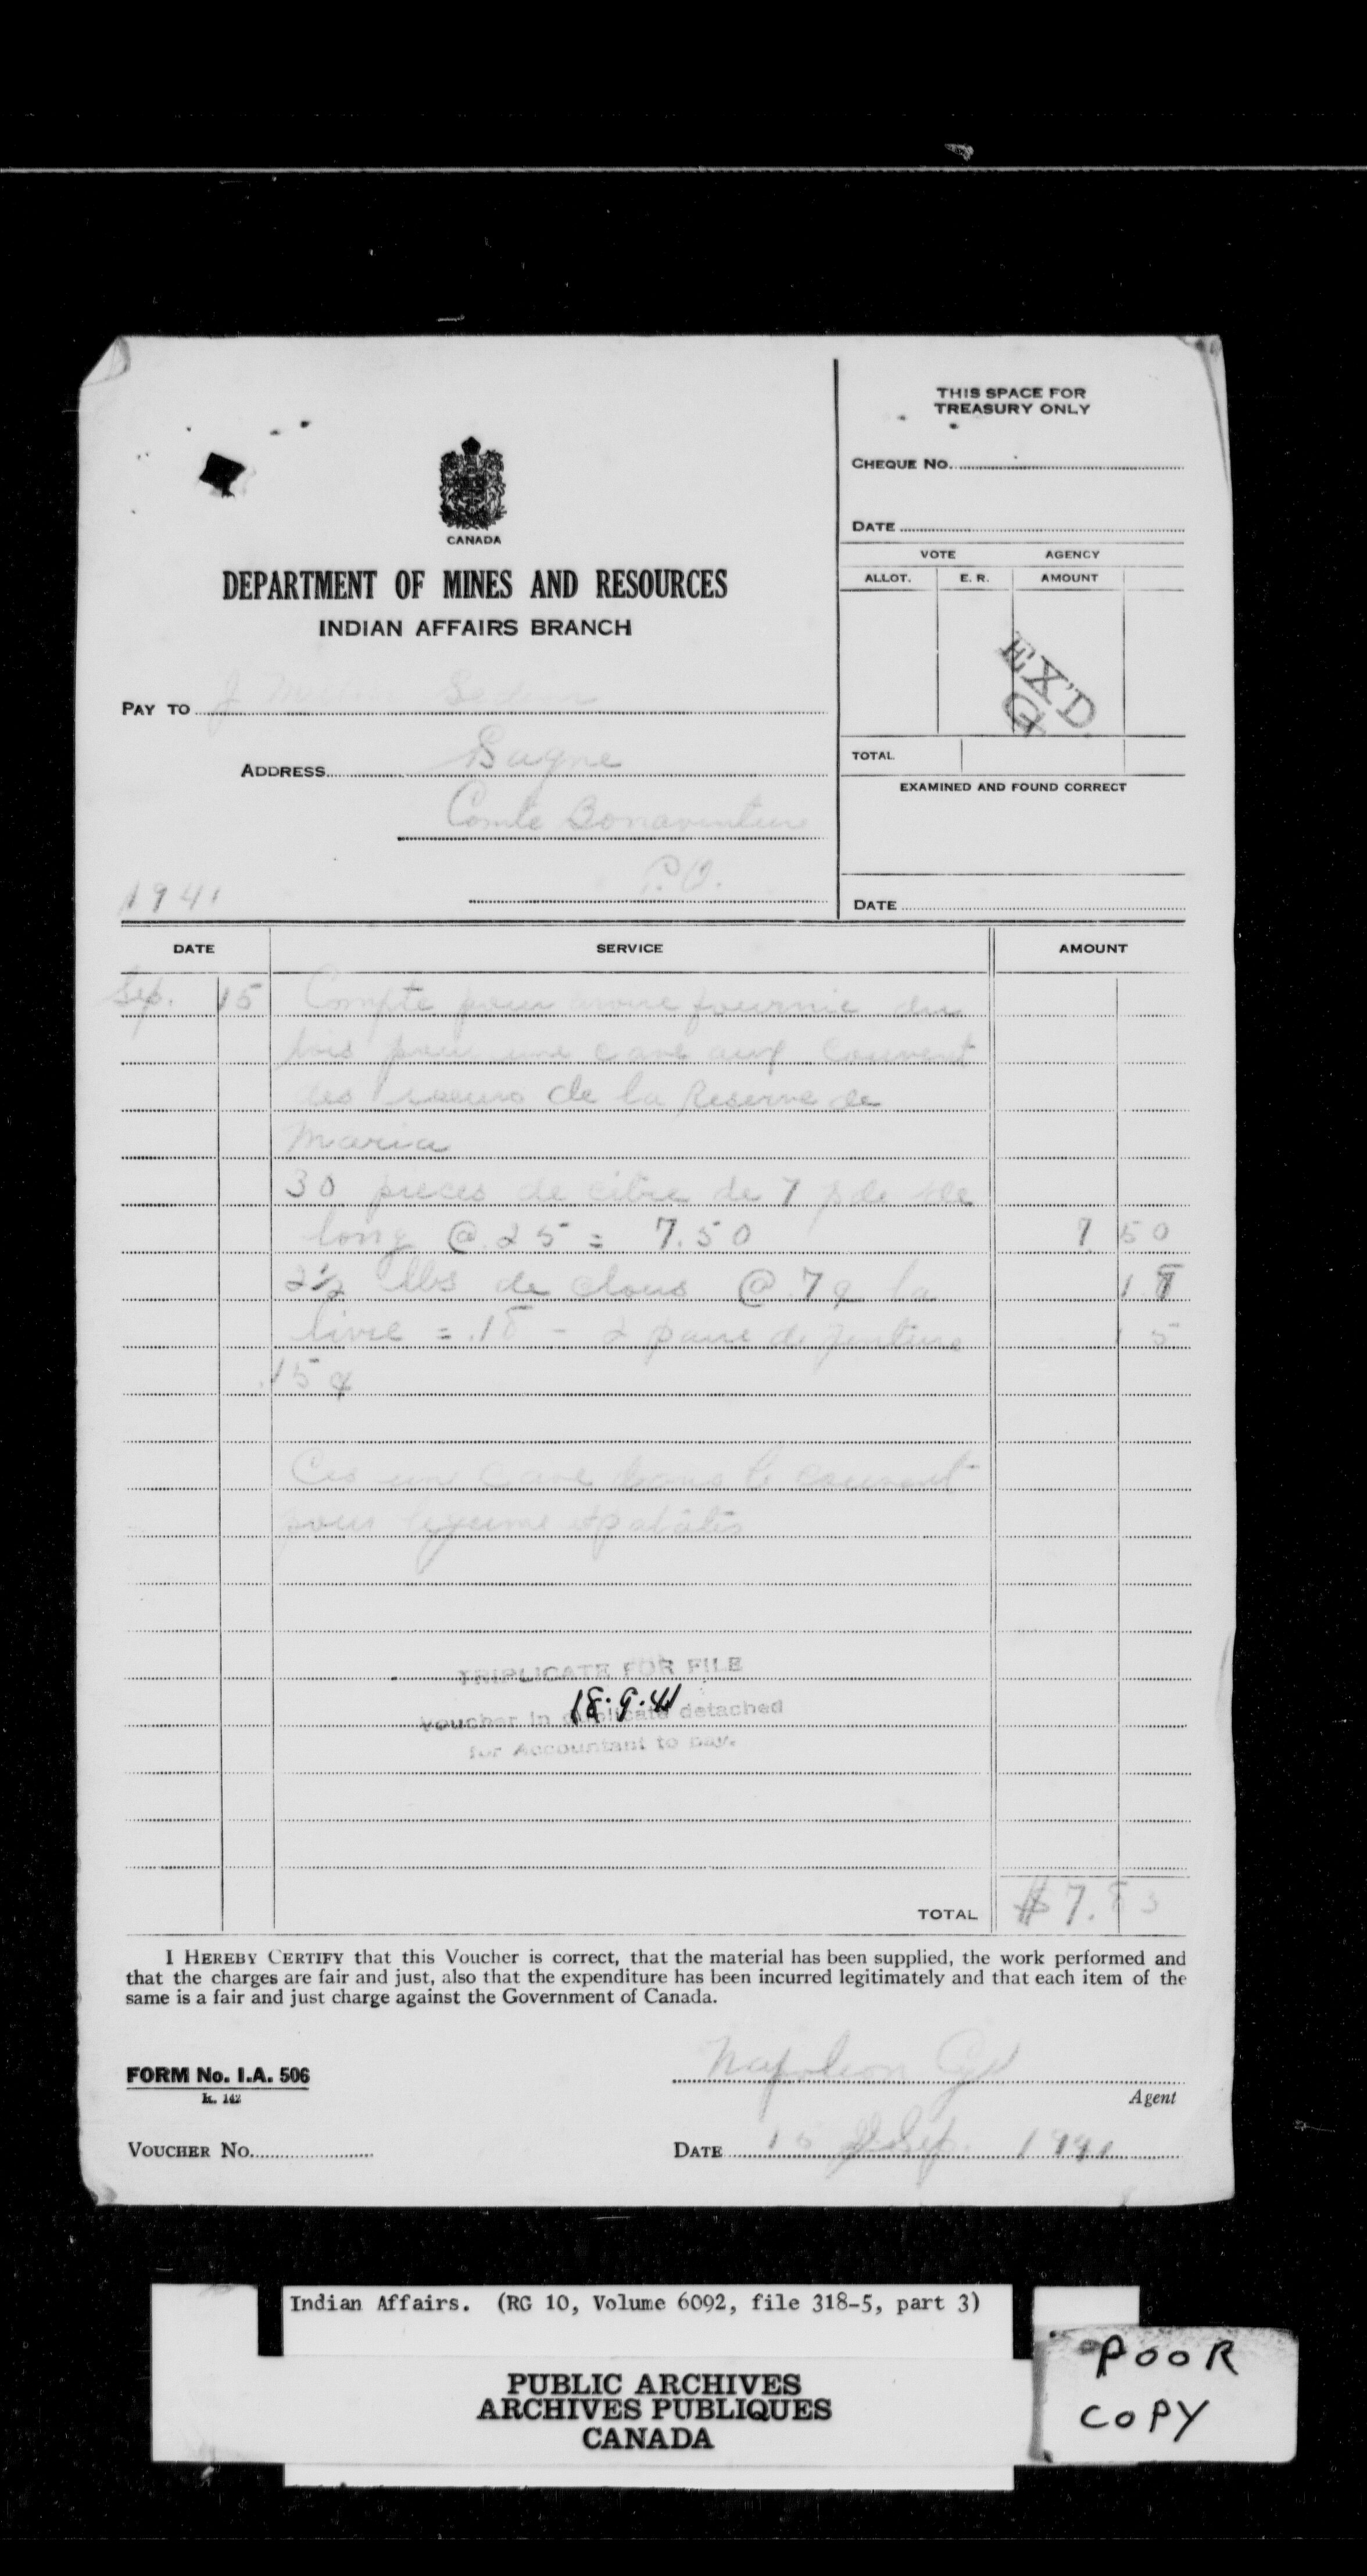 THIS SPACE FOR
TREASURY ONLY
CHEQUE No.
DATE
VOTE AGENCY
ALLOT. E. R. AMOUNT
EX'D
TOTAL
EXAMINED AND FOUND CORRECT
DATE
CANADA
DEPARTMENT OF MINES AND RESOURCES
INDIAN AFFAIRS BRANCH
PAY TO J
ADDRESS
Comte Bonaventure
P.Q.
1941
DATE SERVICE AMOUNT
Sep. 15 Compte pour avoir fournie du
bois pour une cave aux couvent
des soeurs de la Reserve de
Maria
30 pieces de de 7 de
long @ .25 = 7.50 7 50
2½ lbs de clous @ 7 ¢ la
livre = .18 - 2 paire de
.15 ¢
cave dans le couvent
pour et patates
TRIPLICATE FOR FILE
18.9.41
Voucher in duplicate detached
for Accountant to pay.
TOTAL $7.83
I HEREBY CERTIFY that this Voucher is correct, that the material has been supplied, the work performed and
that the charges are fair and just, also that the expenditure has been incurred legitimately and that each item of the
same is a fair and just charge against the Government of Canada.
Napoleon
FORM No. I.A. 506
Agent
R. 142
VOUCHER No.
DATE 15 Sep. 1941
Indian Affairs. (RG 10, Volume 6092, file 318-5, part 3)
PUBLIC ARCHIVES
ARCHIVES PUBLIQUES
CANADA
POOR
COPY